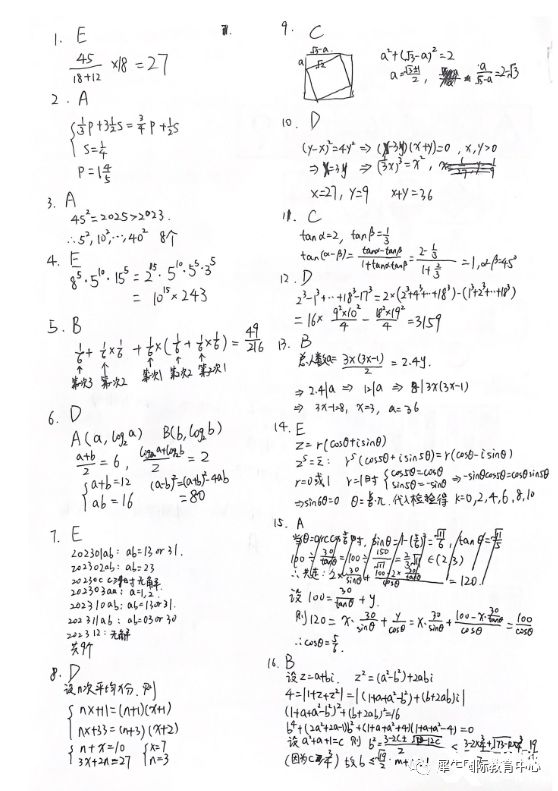 1. E
45/(18+12) ×18 = 27
2. A
{ 1/3 P + 3 1/2 S = 3/4 P + 1/2 S
S = 1/4
P = 1 4/5
3. A
45² = 2025 > 2023.
∴ 5², 10², ⋯, 40² 8个
4. E
8⁵·5¹⁰·15⁵ = 2¹⁵·5¹⁰·5⁵·3⁵
= 10¹⁵ × 243
5. B
1/6 + 1/6 × 1/6 + 1/6 × (1/6 + 1/6 × 1/6) = 49/216
第一次3 第一次2 第一次1 第二次2 第二次1
6. D
A(a, log₂a) B(b, log₂b)
(a+b)/2 = 6, (log₂a+log₂b)/2 = 2
{ a+b = 12
ab = 16
(a-b)² = (a+b)² - 4ab
= 80
7. E
202301ab: ab = 13 or 31.
202302ab: ab = 23
202303aa: a = 1, 2.
202310ab: ab = 13 or 31.
202311ab: ab = 03 or 30
202312: 无解
共9个
8. D
设n次平均x分. 则
{ nx+11 = (n+1)(x+1)
nx+33 = (n+3)(x+2)
{ n+x = 10
3x+2n = 27
{ x = 7
n = 3
9. C
√3-a
a
√2
a² + (√3-a)² = 2
a = (√3+1)/2,
a/(√3-a) = 2-√3
10. D
(y-x)² = 4y² ⇒ (x-3y)(x+y) = 0, x, y > 0
⇒ x = 3y ⇒ (1/3 x)³ = x²,
x = 27, y = 9 x+y = 36
11. C
tanα = 2, tanβ = 1/3
tan(α-β) = (tanα-tanβ)/(1+tanα·tanβ) = (2-1/3)/(1+2/3) = 1, α-β = 45°
12. D
2³-1³+⋯+18³-17³ = 2×(2³+4³+⋯+18³)-(1³+2³+⋯+18³)
= 16× (9²×10²)/4 - (18²×19²)/4 = 3159
13. B
3x(3x-1)/2 = 2.4y.
⇒ 3x-1=8, x = 3, a = 36
14. E
z = r(cosθ+isinθ)
z⁵ = z̄: r⁵(cos5θ+isin5θ) = r(cosθ-isinθ)
r = 0或1 r=1时 { cos5θ = cosθ
sin5θ = -sinθ ⇒ -sinθcos5θ = cosθsin5θ
⇒ sin6θ = 0 代入检验得 k = 0, 2, 4, 6, 8, 10
15. A
设 100 = 30/tanθ + y.
则 120 = x·30/sinθ + y/cosθ = x·30/sinθ + (100-x·30/tanθ)/cosθ = 100/cosθ
∴ cosθ = 5/6.
16. B
设 z = a+bi. z² = (a²-b²)+2abi
4 = |1+z+z²| = |(1+a+a²-b²)+(b+2ab)i|
(1+a+a²-b²)²+(b+2ab)² = 16
b⁴+(2a²+2a-1)b²+(1+a+a²+4)(1+a+a²-4) = 0
设 a²+a+1 = c 则
犀牛国际教育中心